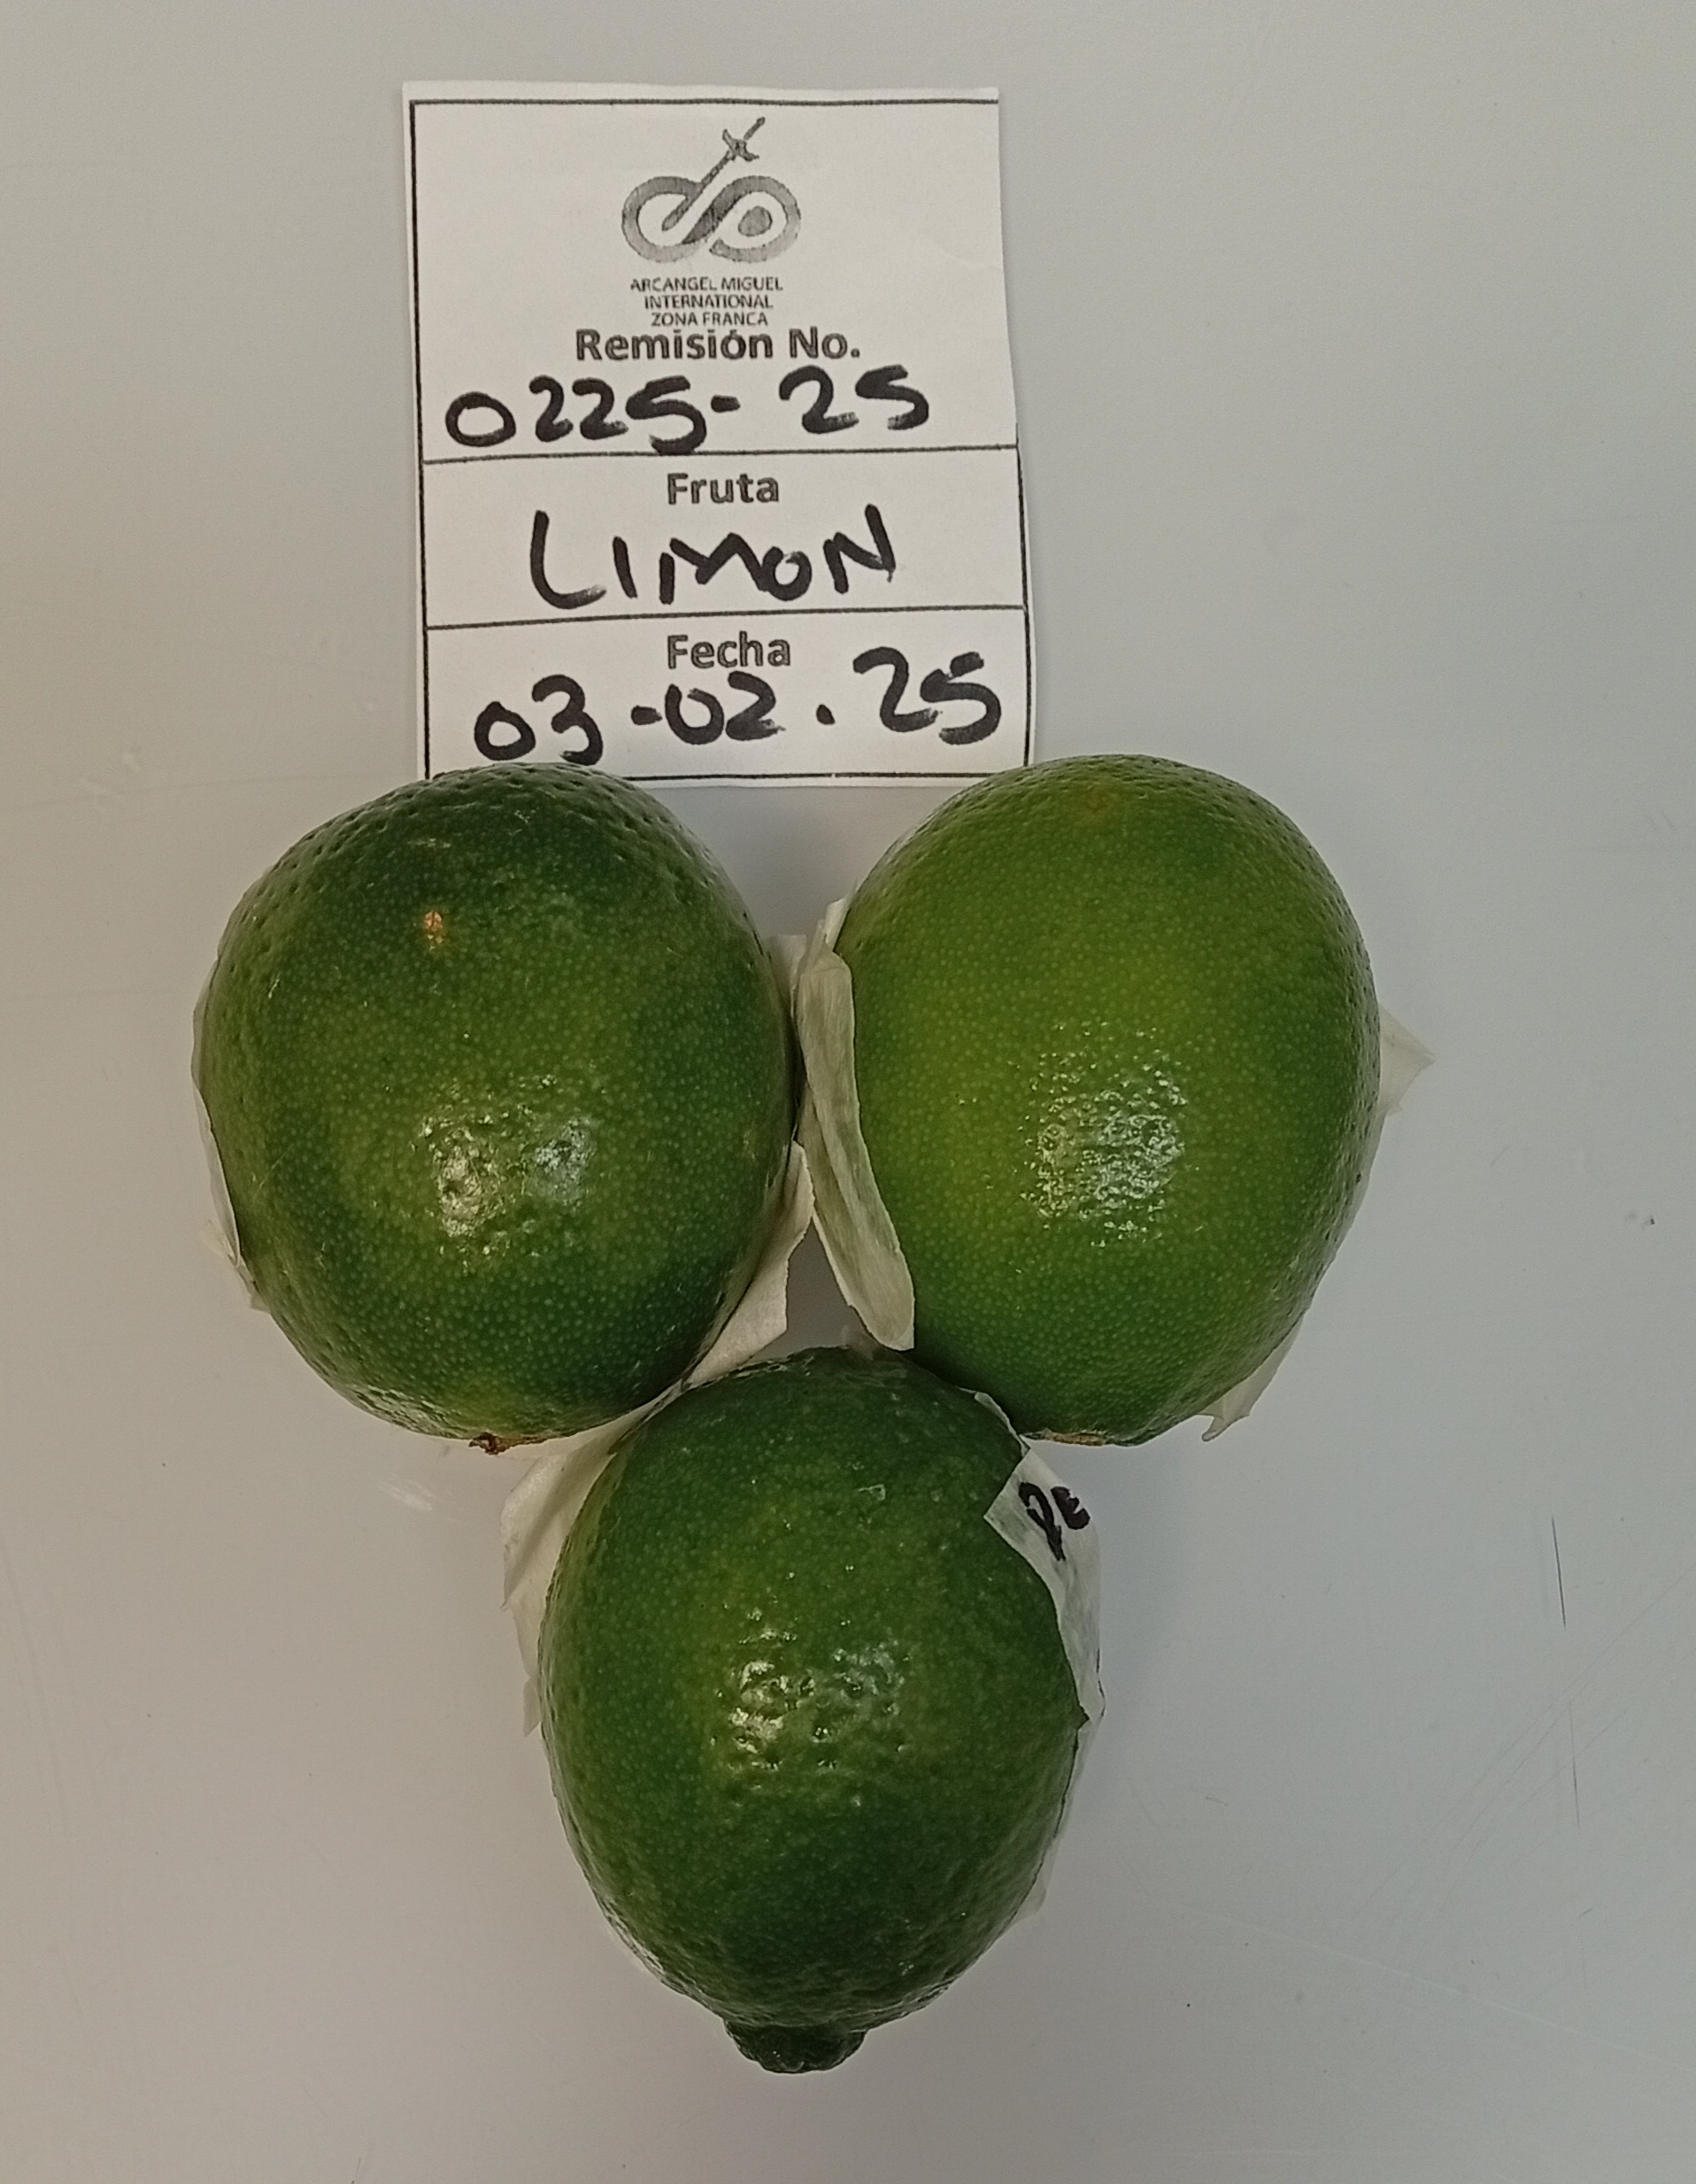 ARCANGEL MIGUEL
INTERNATIONAL
ZONA FRANCA
Remisión No.
0225-25
Fruta
LIMON
Fecha
03-02.25
PE